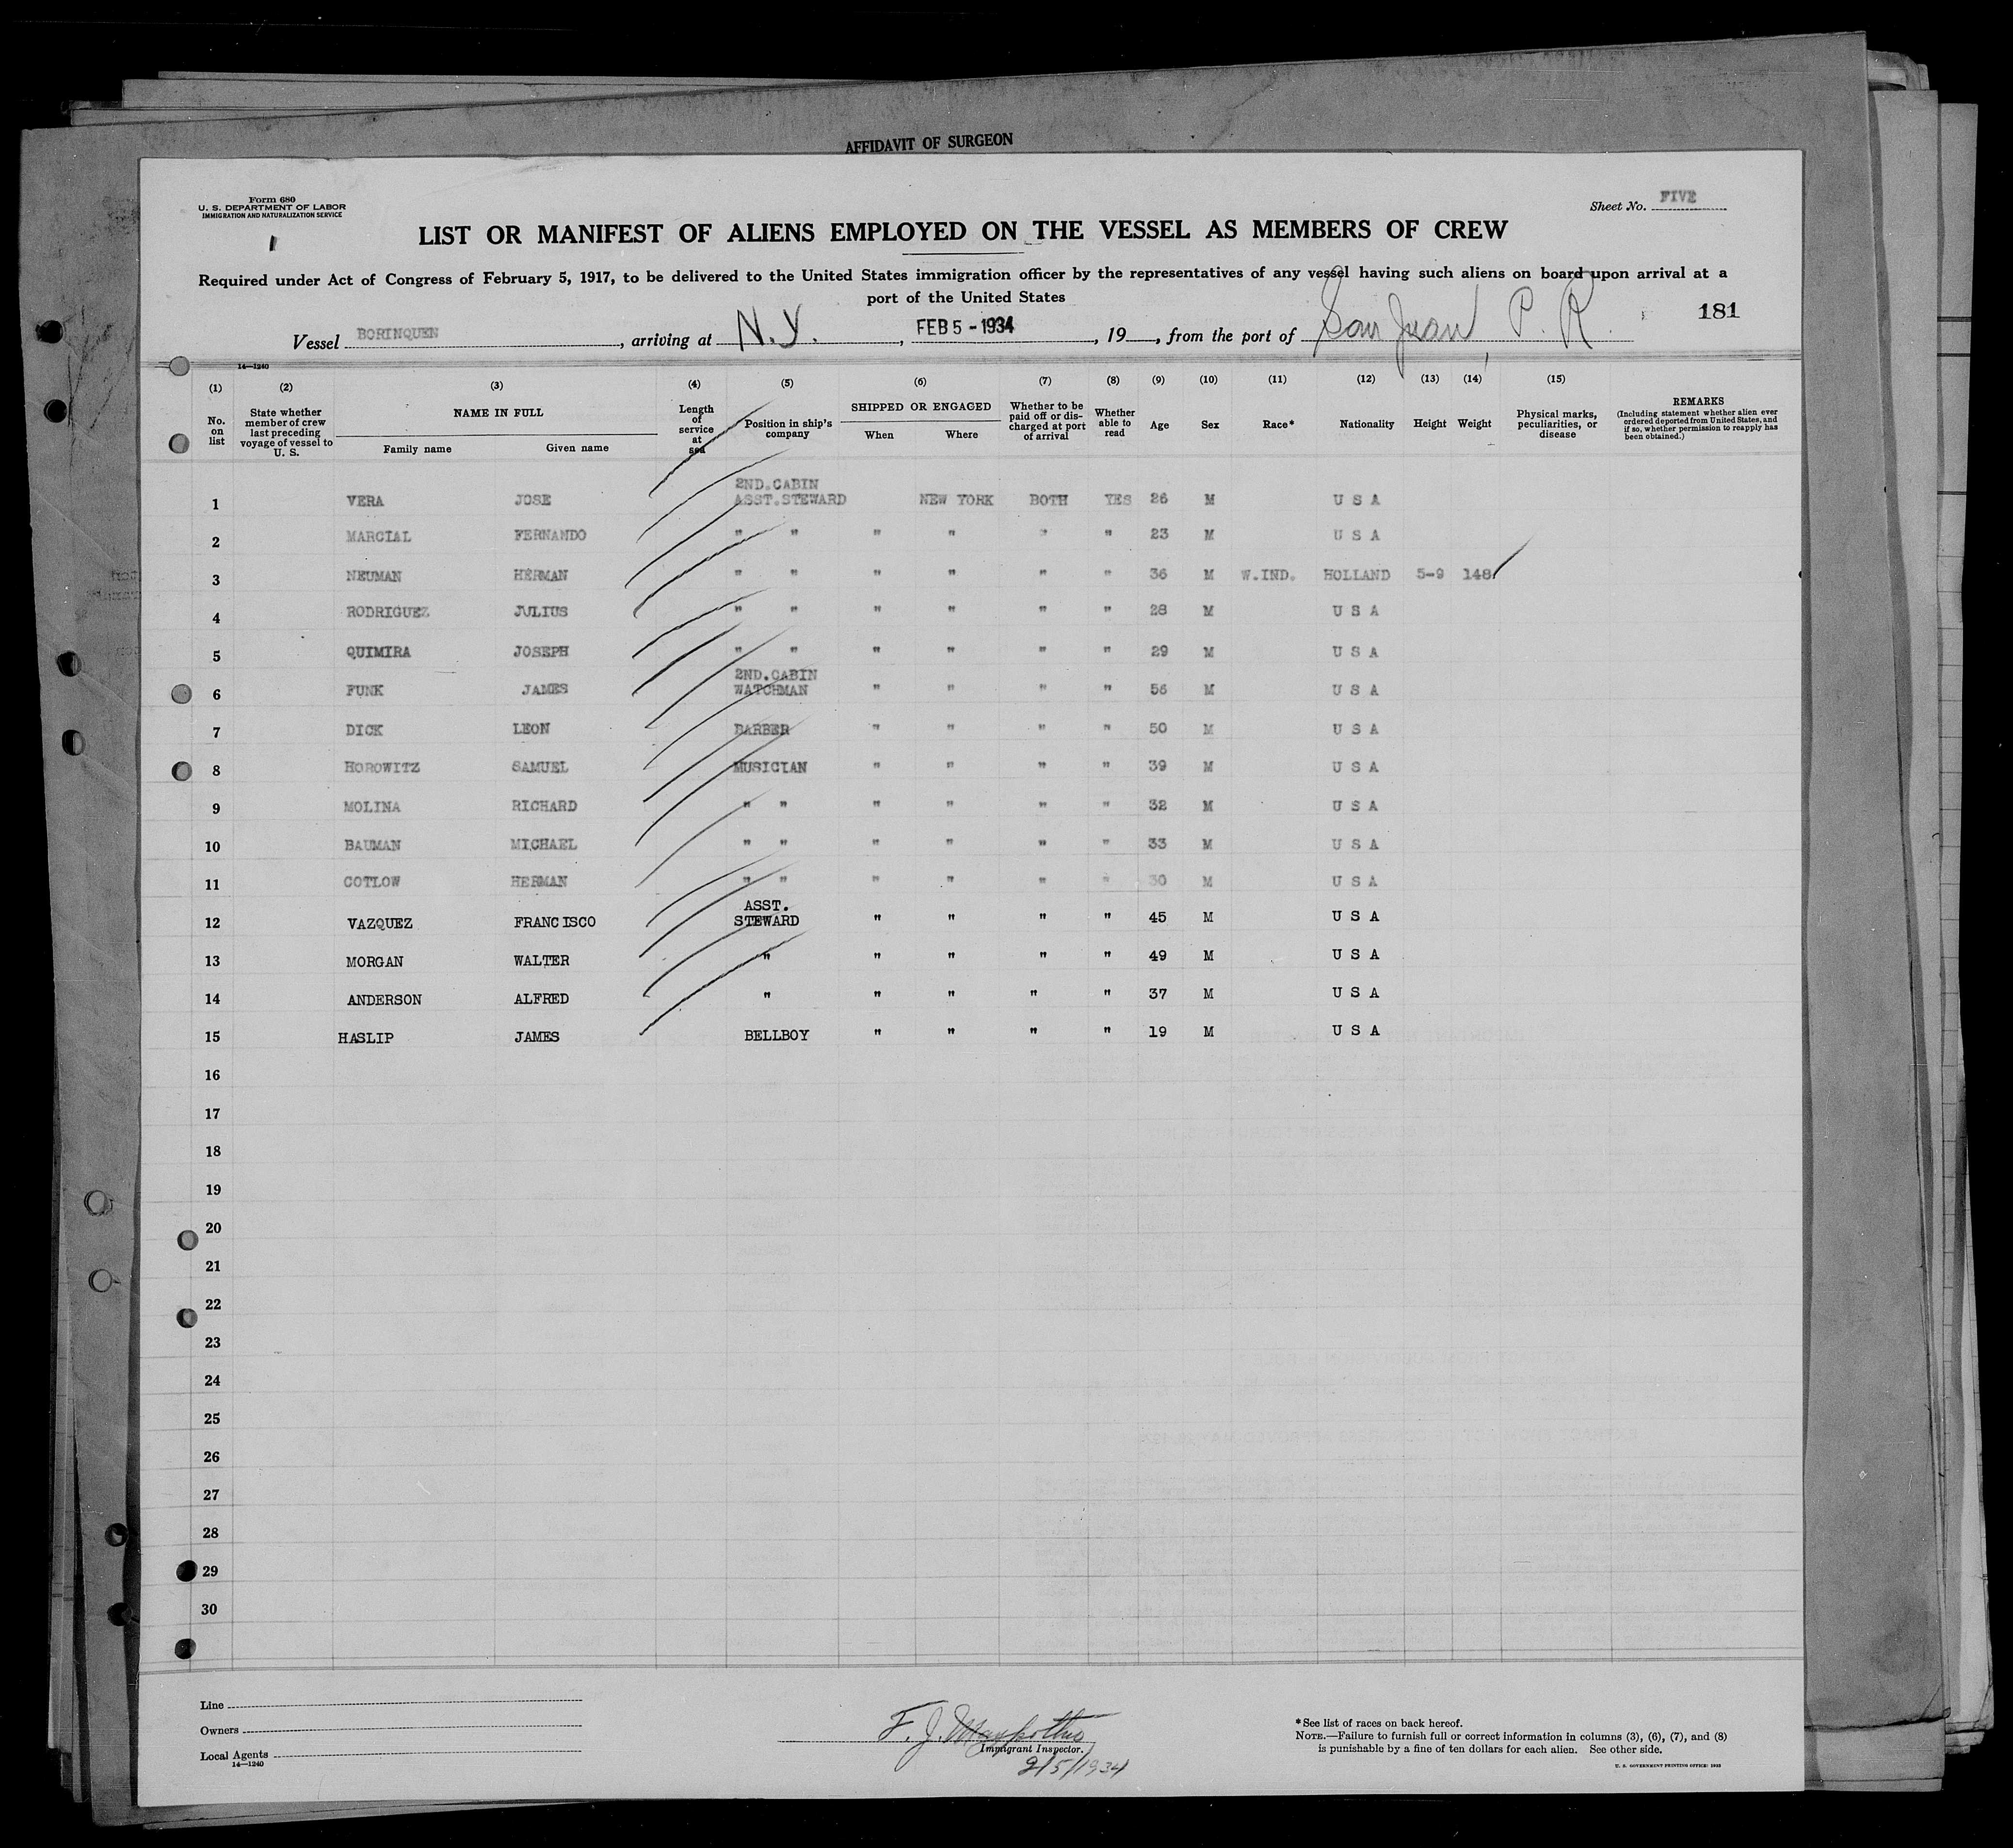 AFFIDAVIT OF SURGEON
Form 680
U. S. DEPARTMENT OF LABOR
IMMIGRATION AND NATURALIZATION SERVICE
Sheet No. FIVE
LIST OR MANIFEST OF ALIENS EMPLOYED ON THE VESSEL AS MEMBERS OF CREW
Required under Act of Congress of February 5, 1917, to be delivered to the United States immigration officer by the representatives of any vessel having such aliens on board upon arrival at a
port of the United States
181
Vessel BORINQUEN, arriving at N.Y., FEB 5 - 1934, 19, from the port of San Juan, P. R.
14—1240
(1) (2) (3) (4) (5) (6) (7) (8) (9) (10) (11) (12) (13) (14) (15)
No. on list
State whether member of crew last preceding voyage of vessel to U. S.
NAME IN FULL
Family name Given name
Length of service at sea
Position in ship's company
SHIPPED OR ENGAGED
When Where
Whether to be paid off or discharged at port of arrival
Whether able to read
Age
Sex
Race*
Nationality
Height
Weight
Physical marks, peculiarities, or disease
REMARKS
(Including statement whether alien ever ordered deported from United States, and if so, whether permission to reapply has been obtained.)
1 VERA JOSE 2ND.CABIN ASST.STEWARD NEW YORK BOTH YES 26 M U S A
2 MARCIAL FERNANDO " " " " " " 23 M U S A
3 NEUMAN HERMAN " " " " " " 36 M W.IND. HOLLAND 5-9 148
4 RODRIGUEZ JULIUS " " " " " " 28 M U S A
5 QUIMIRA JOSEPH " " " " " " 29 M U S A
6 FUNK JAMES 2ND.CABIN WATCHMAN " " " " 56 M U S A
7 DICK LEON BARBER " " " " 50 M U S A
8 HOROWITZ SAMUEL MUSICIAN " " " " 39 M U S A
9 MOLINA RICHARD " " " " " " 32 M U S A
10 BAUMAN MICHAEL " " " " " " 33 M U S A
11 COTLOW HERMAN " " " " " " 30 M U S A
12 VAZQUEZ FRANCISCO ASST. STEWARD " " " " 45 M U S A
13 MORGAN WALTER " " " " " 49 M U S A
14 ANDERSON ALFRED " " " " " 37 M U S A
15 HASLIP JAMES BELLBOY " " " " 19 M U S A
16
17
18
19
20
21
22
23
24
25
26
27
28
29
30
Line
Owners
Local Agents
14—1240
F. J.
Immigrant Inspector.
2/5/1934
*See list of races on back hereof.
NOTE.—Failure to furnish full or correct information in columns (3), (6), (7), and (8)
is punishable by a fine of ten dollars for each alien. See other side.
U. S. GOVERNMENT PRINTING OFFICE: 1933